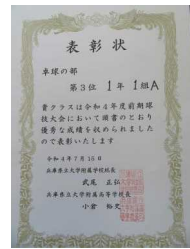 表彰状
卓球の部
第3位 1年 1組A
貴クラスは令和4年度前期球
技大会において頭書のとおり
優秀な成績を収められました
ので表彰いたします
令和4年7月15日
兵庫県立大学附属学校校長
武尾 正弘
兵庫県立大学附属高等学校長
小倉 裕史